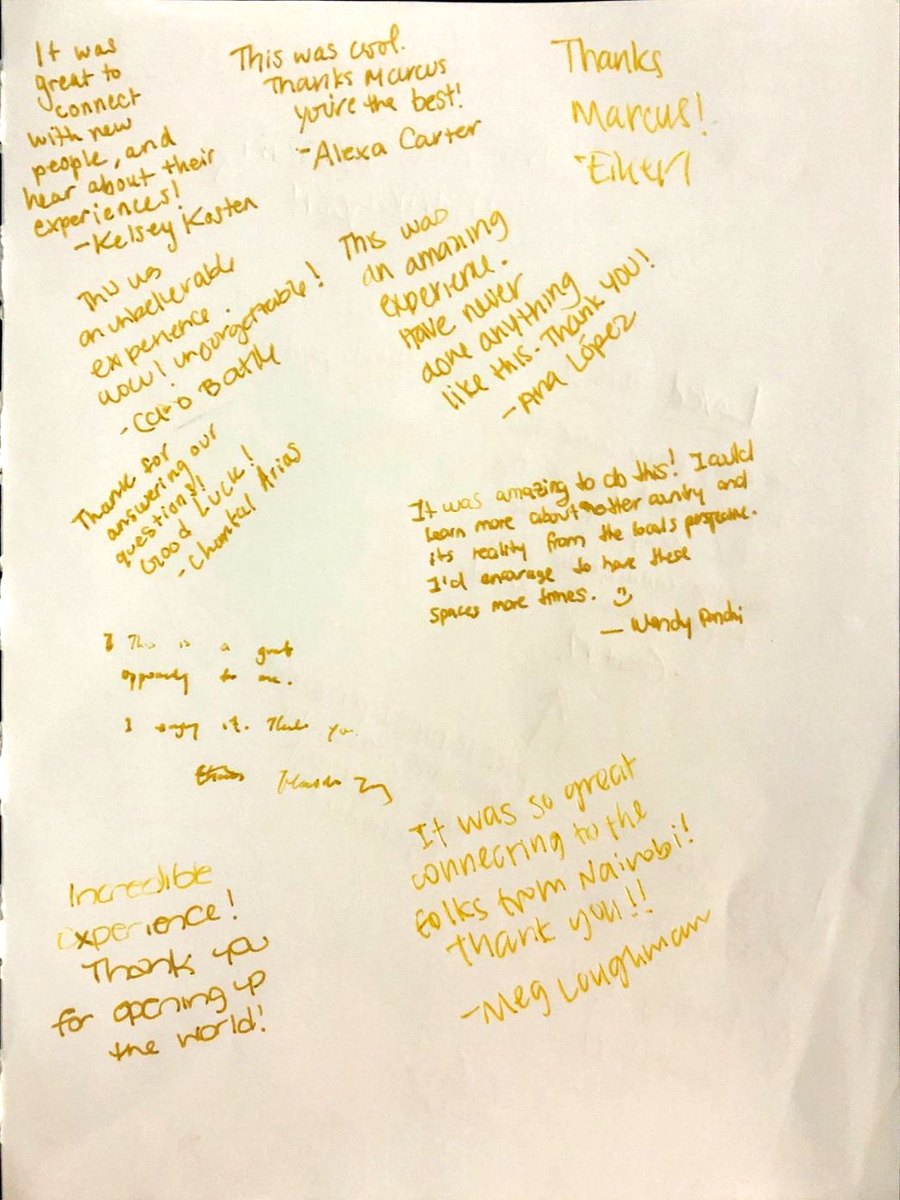 It was
great to
connect
with new
people, and
hear about their
experiences!
-Kelsey Kosten
This was cool.
Thanks Marcus
you're the best!
-Alexa Carter
Thanks
Marcus!
This was
an unbelievable
experience.
wow! unforgettable!
- Batlle
This was
an amazing
experience.
Have never
done anything
like this. Thank you!
-Ana López
Thanks for
answering our
questions!
Good Luck!
-Chantal Arias
It was amazing to do this! I could
learn more about another country and
its reality from the locals perspective.
I'd encourage to have these
spaces more times. :)
— Wendy
This is a great
opportunity to me.
I enjoy it. Thank you
It was so great
connecting to the
folks from Nairobi!
Thank you!!
-Meg Loughman
Incredible
experience!
Thank you
for opening up
the world!